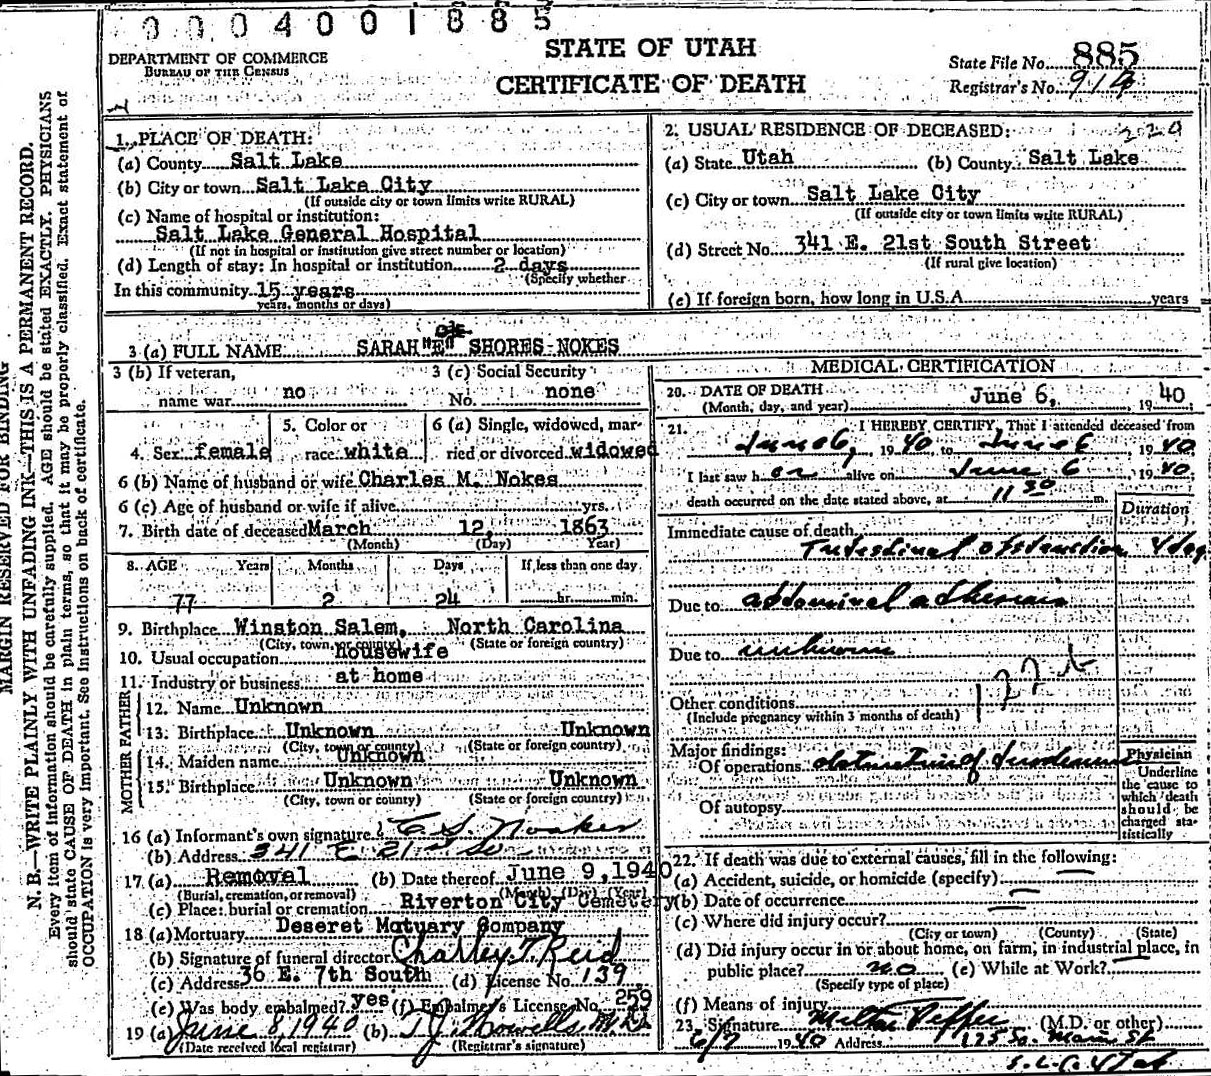 0 0 0 4 0 0 1 8 8 5
DEPARTMENT OF COMMERCE
BUREAU OF THE CENSUS
STATE OF UTAH
CERTIFICATE OF DEATH
State File No. 885
Registrar's No. 914
MARGIN RESERVED FOR BINDING
N. B.—WRITE PLAINLY WITH UNFADING INK—THIS IS A PERMANENT RECORD.
Every item of information should be carefully supplied. AGE should be stated EXACTLY. PHYSICIANS
should state CAUSE OF DEATH in plain terms, so that it may be properly classified. Exact statement of
OCCUPATION is very important. See instructions on back of certificate.
1. PLACE OF DEATH:
(a) County Salt Lake
(b) City or town Salt Lake City
(If outside city or town limits write RURAL)
(c) Name of hospital or institution:
Salt Lake General Hospital
(If not in hospital or institution give street number or location)
(d) Length of stay: In hospital or institution 2 days
(Specify whether
In this community 15 years
years, months or days)
2. USUAL RESIDENCE OF DECEASED:
(a) State Utah (b) County Salt Lake
(c) City or town Salt Lake City
(If outside city or town limits write RURAL)
(d) Street No. 341 E. 21st South Street
(If rural give location)
(e) If foreign born, how long in U.S.A. years
3 (a) FULL NAME SARAH "E" SHORES NOKES
3 (b) If veteran, name war no
3 (c) Social Security No. none
4. Sex female
5. Color or race white
6 (a) Single, widowed, married or divorced widowed
6 (b) Name of husband or wife Charles M. Nokes
6 (c) Age of husband or wife if alive yrs.
7. Birth date of deceased March 12, 1863
(Month) (Day) Year)
8. AGE Years Months Days If less than one day
77 2 24 hr. min.
9. Birthplace Winston Salem, North Carolina
(City, town, or county) (State or foreign country)
10. Usual occupation housewife
11. Industry or business at home
FATHER
12. Name Unknown
13. Birthplace Unknown Unknown
(City, town or county) (State or foreign country)
MOTHER
14. Maiden name Unknown
15. Birthplace Unknown Unknown
(City, town or county) (State or foreign country)
16 (a) Informant's own signature
(b) Address 341 E 21st So
17. (a) Removal (b) Date thereof June 9, 1940
(Burial, cremation, or removal) (Month) (Day) (Year)
(c) Place: burial or cremation Riverton City Cemetery
18 (a) Mortuary Deseret Motuary Company
(b) Signature of funeral director Charley T. Reid
(c) Address 36 E. 7th South (d) License No. 139
(e) Was body embalmed? yes. (f) Embalmer's License No. 259
19 (a) June 8, 1940 (b)
(Date received local registrar) (Registrar's signature)
MEDICAL CERTIFICATION
20. DATE OF DEATH June 6, 1940
(Month, day, and year)
21. I HEREBY CERTIFY, That I attended deceased from
June 6, 1940 to June 6 1940
I last saw h er alive on June 6 1940
death occurred on the date stated above, at 11 30 m.
Duration
Immediate cause of death
Intestinal obstruction 4 day
Due to abdominal adhesions
Due to unknown
Other conditions
(Include pregnancy within 3 months of death)
Major findings:
Of operations obstruction of duodenum
Of autopsy
Physician
Underline
the cause to
which death
should be
charged sta-
tistically
22. If death was due to external causes, fill in the following:
(a) Accident, suicide, or homicide (specify)
(b) Date of occurrence
(c) Where did injury occur?
(City or town) (County) (State)
(d) Did injury occur in or about home, on farm, in industrial place, in
public place? no (e) While at Work?
(Specify type of place)
(f) Means of injury
23. Signature Milton Pepper (M.D. or other)
6/7 1940 Address 125 So. Main St